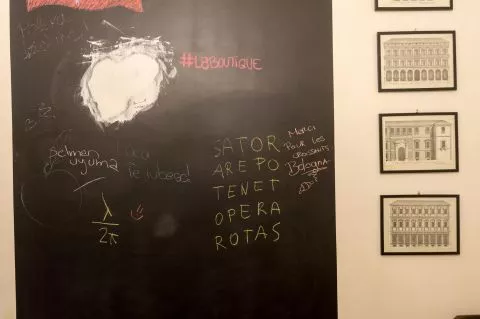 #LABOUTIQUE
SATOR
AREPO
TENET
OPERA
ROTAS
MERCI
POUR LES
CROISSANTS
Bologna
selmen
uyuma
te iubesc!
λ
2π